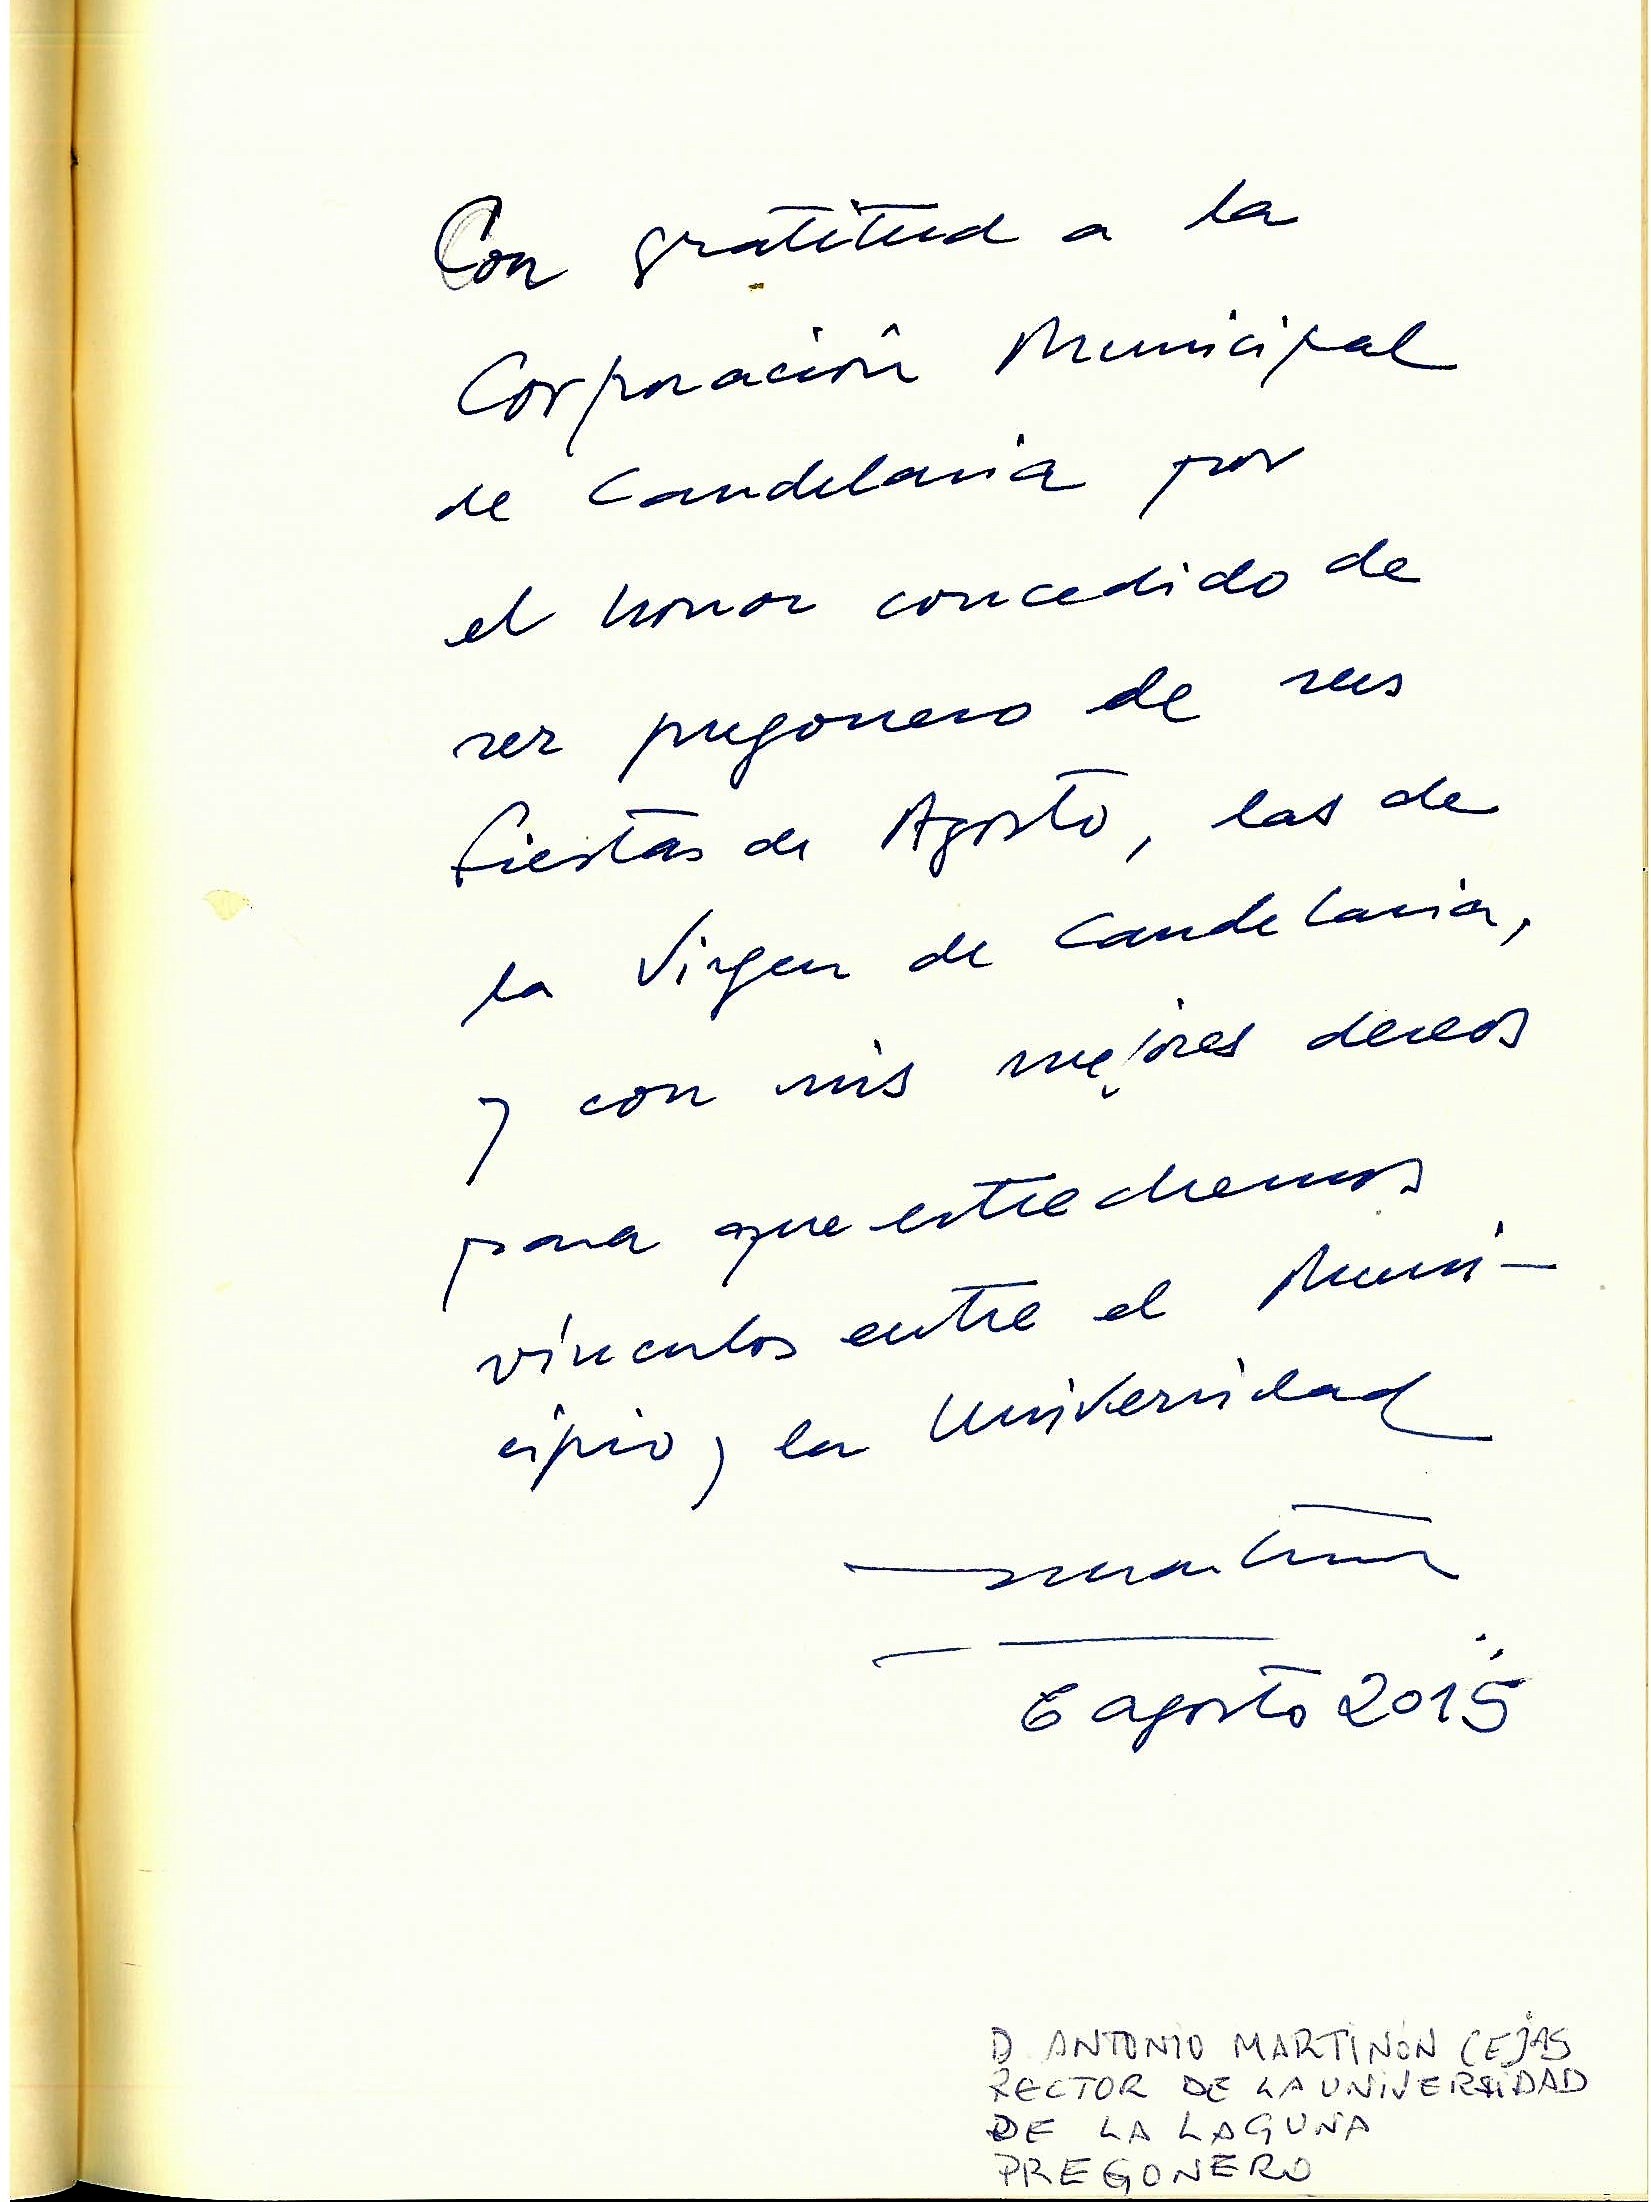 Con gratitud a la
Corporación Municipal
de Candelaria por
el honor concedido de
ser pregonero de sus
fiestas de Agosto, las de
la Virgen de Candelaria,
y con mis mejores deseos
para que estrechemos
vínculos entre el Muni-
cipio y la Universidad
Martinón
6 agosto 2015
D ANTONIO MARTINÓN CEJAS
RECTOR DE LA UNIVERSIDAD
DE LA LAGUNA
PREGONERO